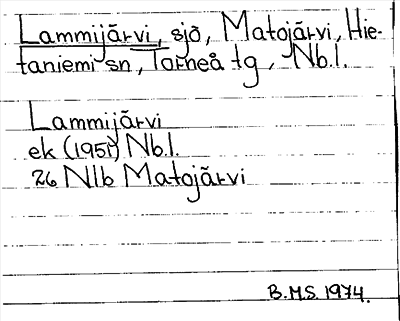 Lammijärvi, sjö, Matojärvi, Hie-
taniemi sn, Torneå tg, Nb.l.
Lammijärvi
ek (1951) Nb.l.
26 Nlb Matojärvi
B.M.S. 1974.